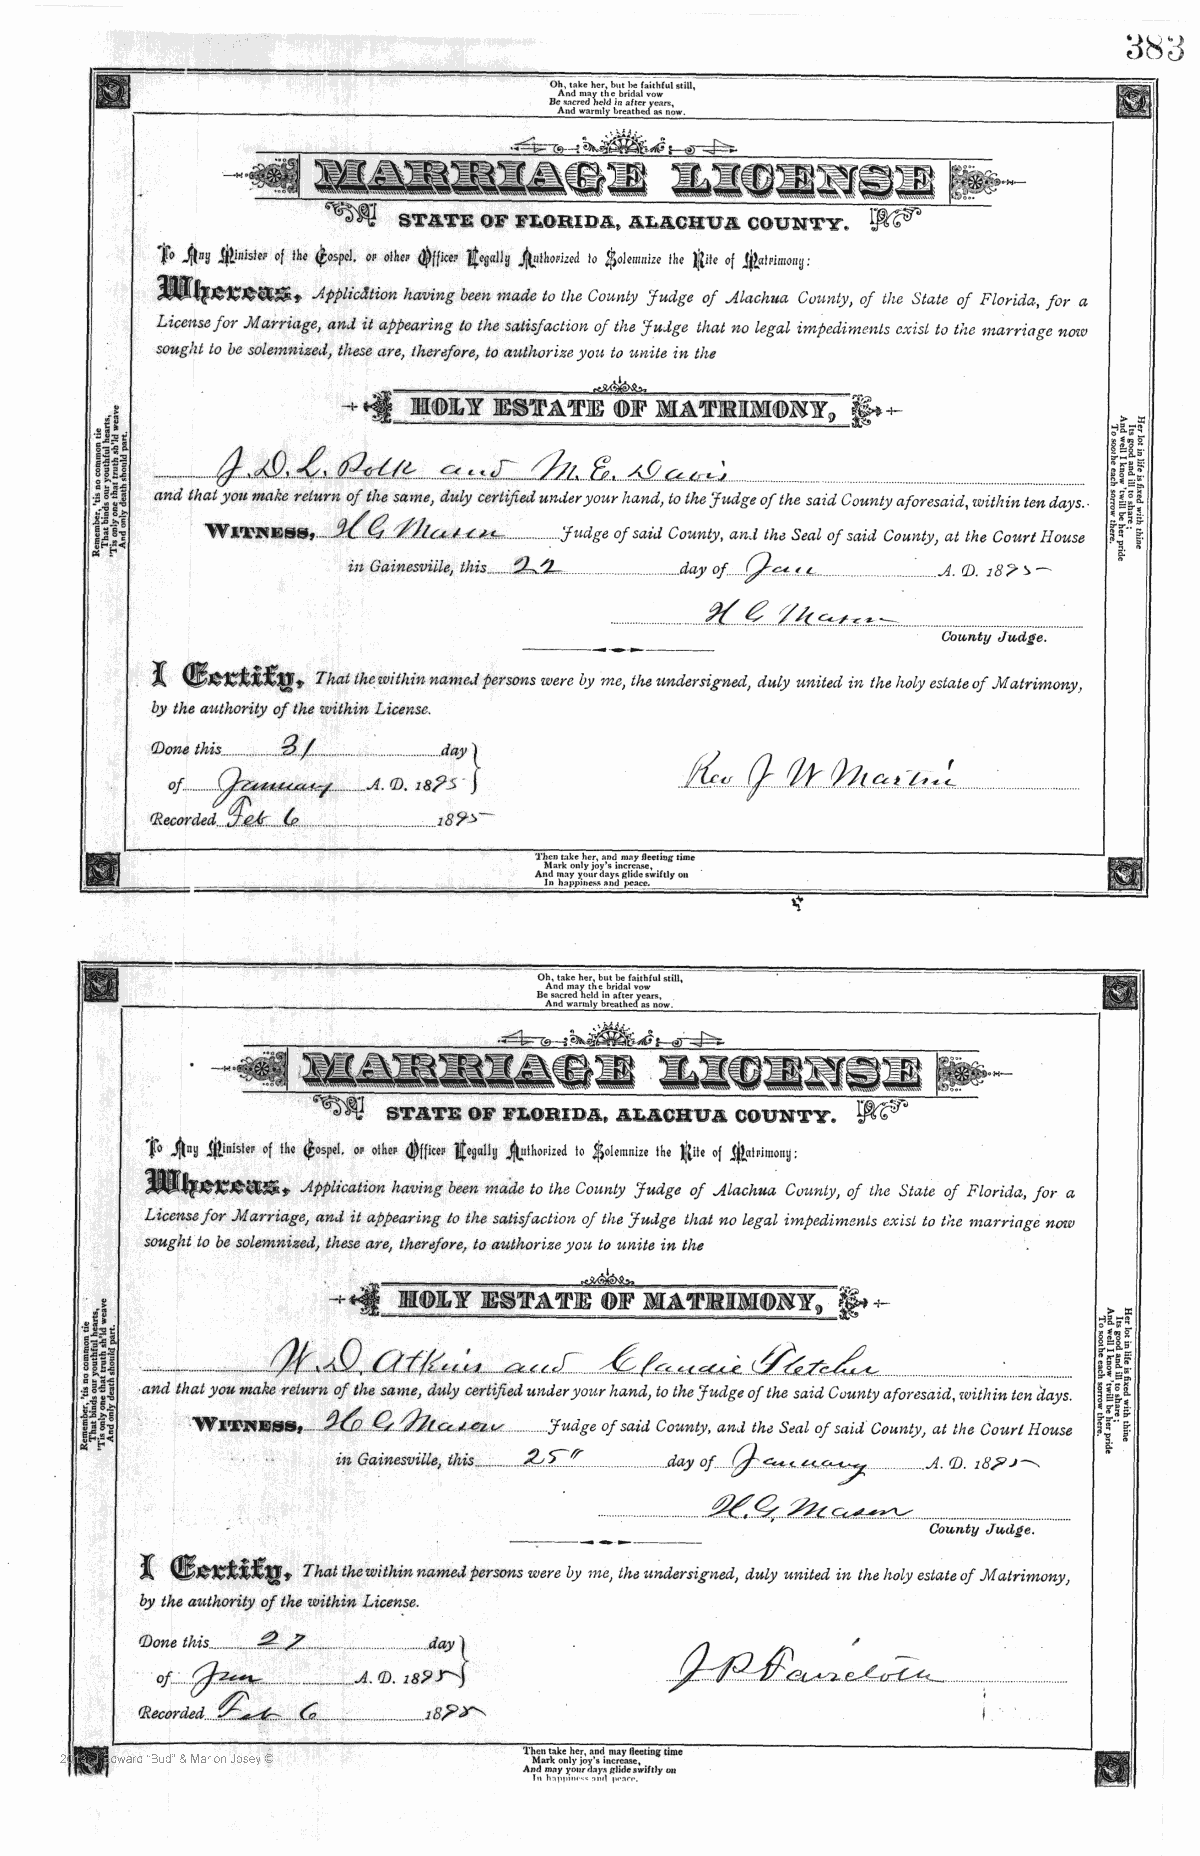 383
Oh, take her, but be faithful still,
And may the bridal vow
Be sacred held in after years,
And warmly breathed as now.
MARRIAGE LICENSE
STATE OF FLORIDA, ALACHUA COUNTY.
To Any Minister of the Gospel, or other Officer Legally Authorized to Solemnize the Rite of Matrimony:
Whereas, Application having been made to the County Judge of Alachua County, of the State of Florida, for a
License for Marriage, and it appearing to the satisfaction of the Judge that no legal impediments exist to the marriage now
sought to be solemnized, these are, therefore, to authorize you to unite in the
HOLY ESTATE OF MATRIMONY,
J. D. L. Polk and M. E. Davis
and that you make return of the same, duly certified under your hand, to the Judge of the said County aforesaid, within ten days.
WITNESS, H G Mason Judge of said County, and the Seal of said County, at the Court House
in Gainesville, this 22 day of Jan A. D. 1895
H G Mason
County Judge.
I Certify, That the within named persons were by me, the undersigned, duly united in the holy estate of Matrimony,
by the authority of the within License.
Done this 31 day
of January A. D. 1895
Rev J W Martin
Recorded Feb 6 1895
Remember, 'tis no common tie
That binds our youthful hearts,
'Tis only one that truth sh'ld weave
And only death should part.
Her lot in life is fixed with thine
Its good and ill to share;
And well I know 'twill be her pride
To soothe each sorrow there.
Then take her, and may fleeting time
Mark only joy's increase,
And may your days glide swiftly on
In happiness and peace.
Oh, take her, but be faithful still,
And may the bridal vow
Be sacred held in after years,
And warmly breathed as now.
MARRIAGE LICENSE
STATE OF FLORIDA, ALACHUA COUNTY.
To Any Minister of the Gospel, or other Officer Legally Authorized to Solemnize the Rite of Matrimony:
Whereas, Application having been made to the County Judge of Alachua County, of the State of Florida, for a
License for Marriage, and it appearing to the satisfaction of the Judge that no legal impediments exist to the marriage now
sought to be solemnized, these are, therefore, to authorize you to unite in the
HOLY ESTATE OF MATRIMONY,
W. D. Atkins and Claudie Fletcher
and that you make return of the same, duly certified under your hand, to the Judge of the said County aforesaid, within ten days.
WITNESS, H G Mason Judge of said County, and the Seal of said County, at the Court House
in Gainesville, this 25" day of January A. D. 1895
H. G. Mason
County Judge.
I Certify, That the within named persons were by me, the undersigned, duly united in the holy estate of Matrimony,
by the authority of the within License.
Done this 27 day
of Jan A. D. 1895
J P Faircloth
Recorded Feb 6 1895
Remember, 'tis no common tie
That binds our youthful hearts,
'Tis only one that truth sh'ld weave
And only death should part.
Her lot in life is fixed with thine
Its good and ill to share;
And well I know 'twill be her pride
To soothe each sorrow there.
"Bud" & Marion Josey ©
Then take her, and may fleeting time
Mark only joy's increase,
And may your days glide swiftly on
In happiness and peace.